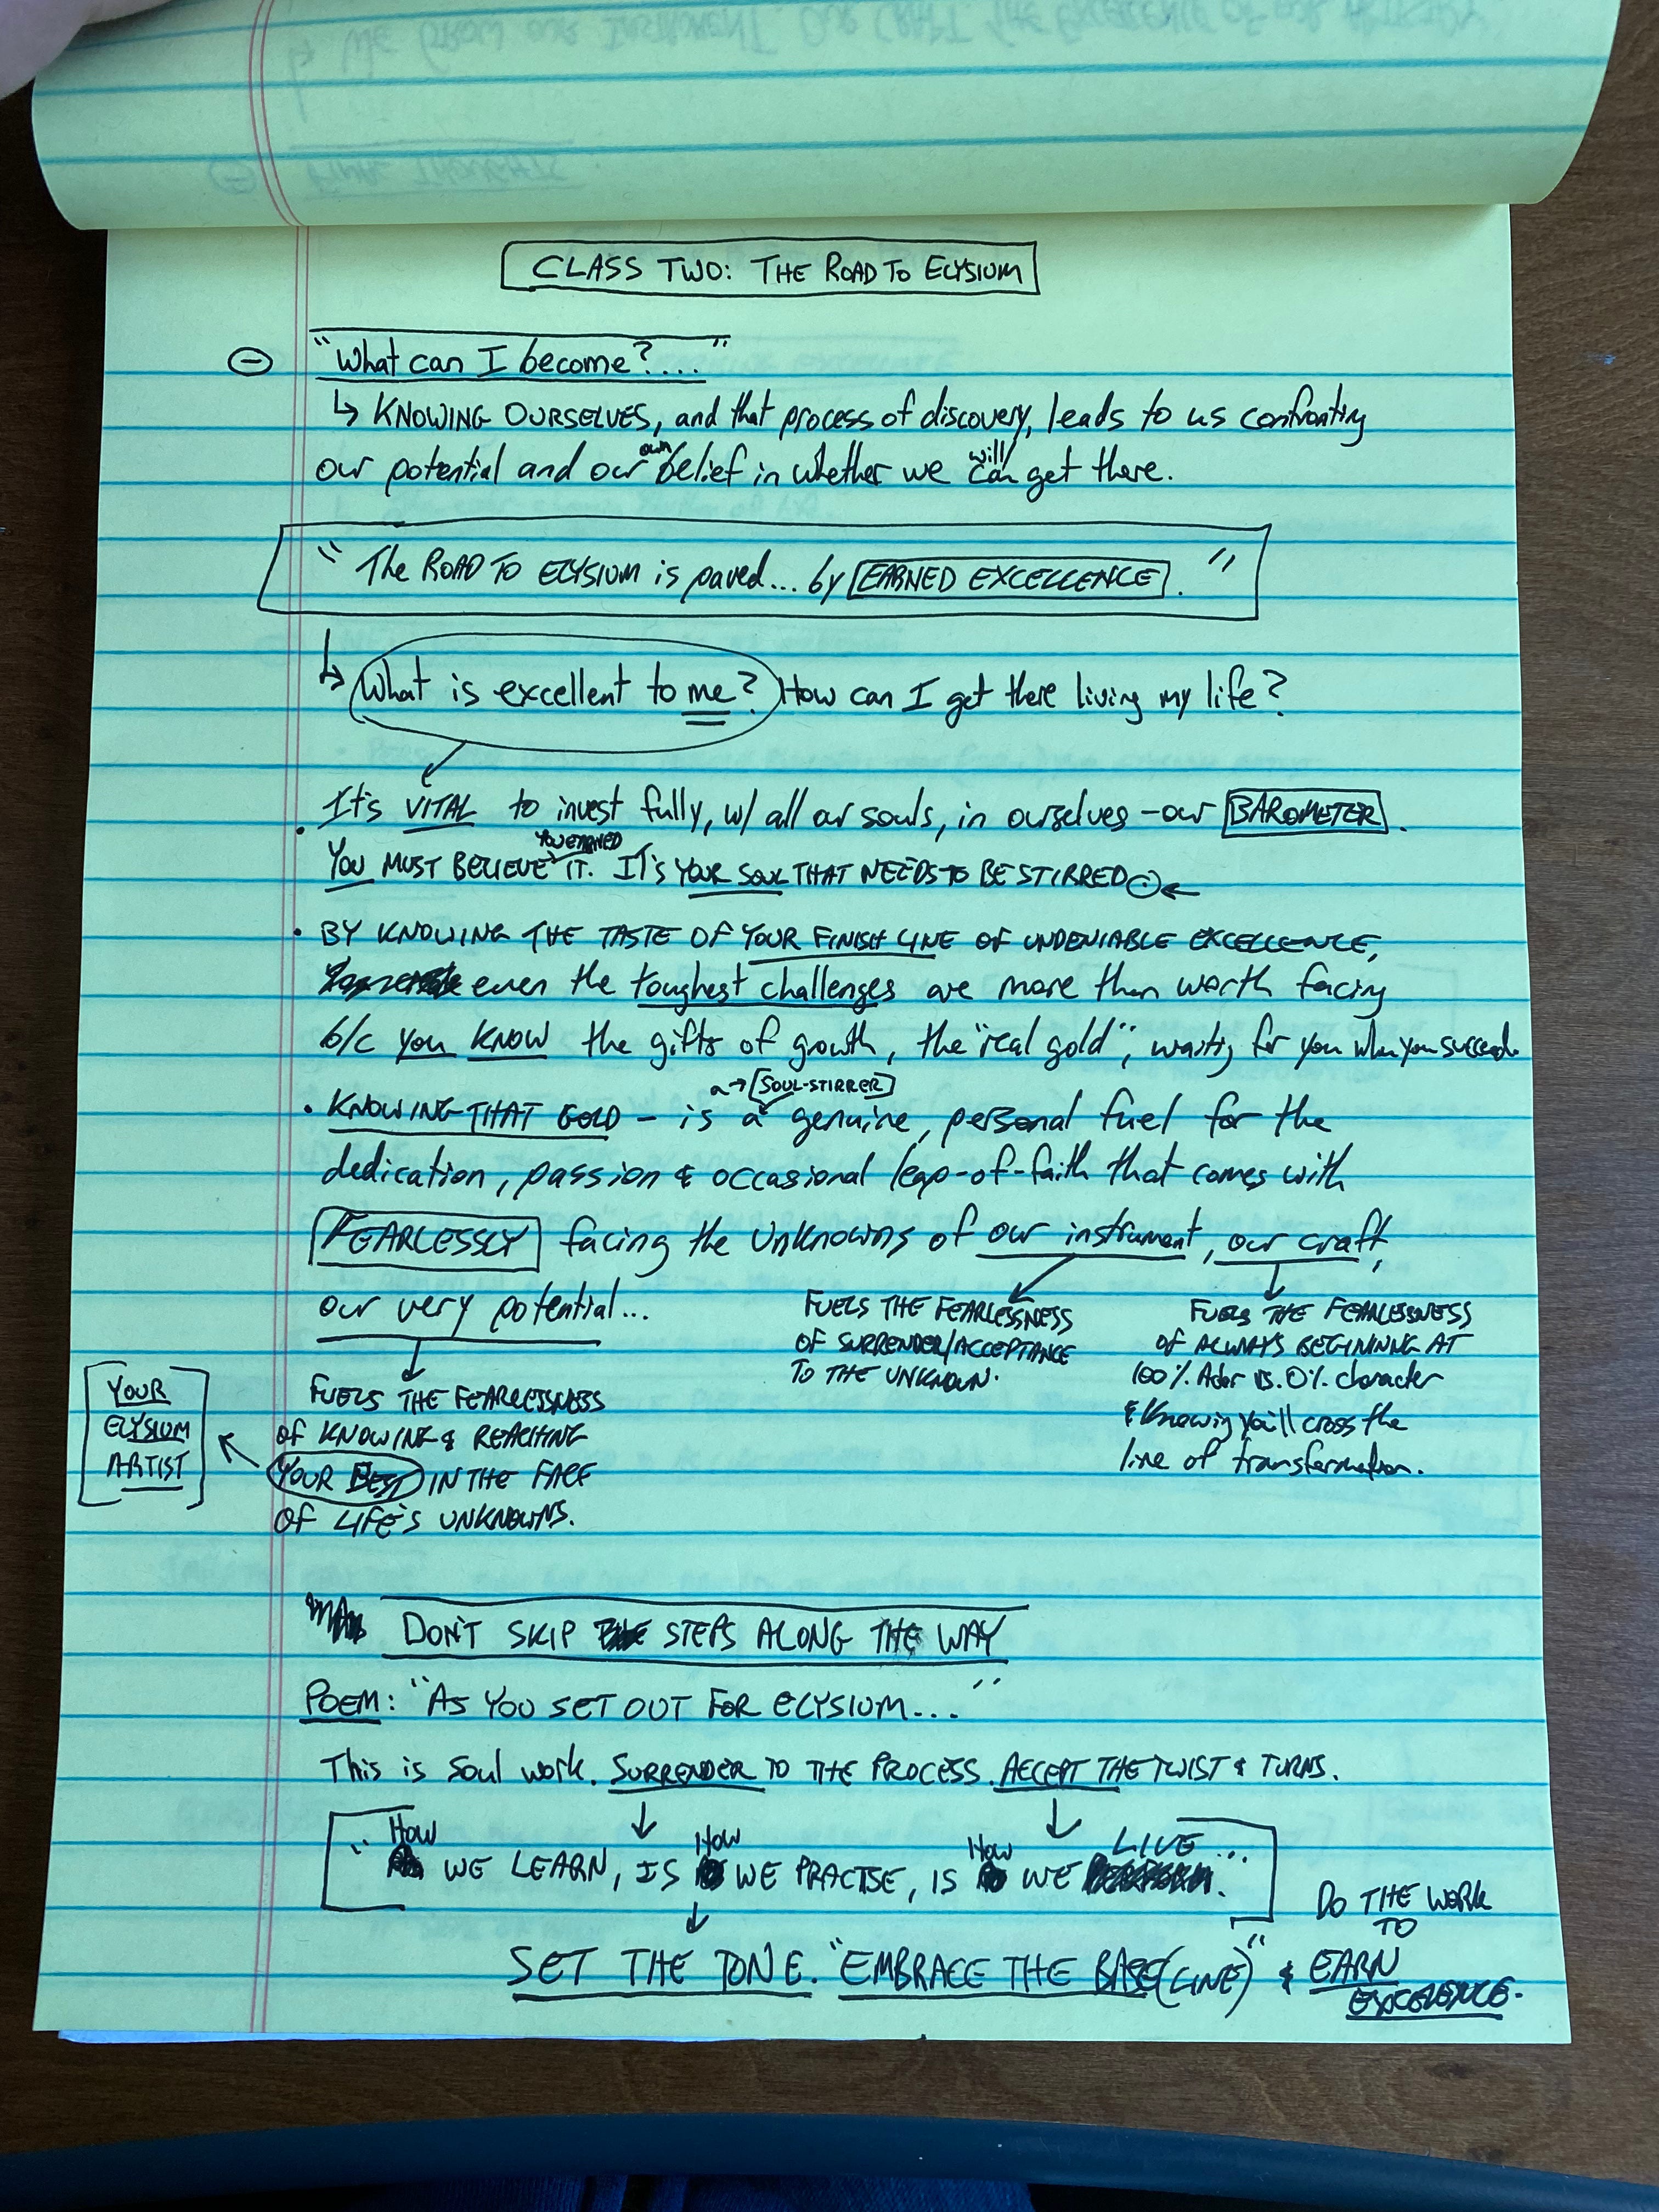 CLASS TWO: THE ROAD TO ELYSIUM
"What can I become?...."
↳ KNOWING OURSELVES, and that process of discovery, leads to us confronting
our potential and our own belief in whether we can/will get there.
"The ROAD TO ELYSIUM is paved... by EARNED EXCELLENCE."
↳ What is excellent to me? How can I get there living my life?
It's VITAL to invest fully, w/ all our souls, in ourselves - our BAROMETER.
YOU MUST BELIEVE YOU EARNED IT. IT'S YOUR SOUL THAT NEEDS TO BE STIRRED ←
• BY KNOWING THE TASTE OF YOUR FINISH LINE OF UNDENIABLE EXCELLENCE,
even the toughest challenges are more than worth facing
b/c you KNOW the gifts of growth, the "real gold", waiting for you when you succeed.
a → [SOUL-STIRRER]
• KNOWING THAT GOLD - is a genuine, personal fuel for the
dedication, passion & occasional leap-of-faith that comes with
FEARLESSLY facing the unknowns of our instrument, our craft,
our very potential...
FUELS THE FEARLESSNESS
OF SURRENDER/ACCEPTANCE
TO THE UNKNOWN.
FUELS THE FEARLESSNESS
OF ALWAYS BEGINNING AT
100% Actor vs. 0% character
& Knowing you'll cross the
line of transformation.
FUELS THE FEARLESSNESS
OF KNOWING & REACHING
YOUR BEST IN THE FACE
OF LIFE'S UNKNOWNS.
YOUR
ELYSIUM
ARTIST
DON'T SKIP STEPS ALONG THE WAY
POEM: "AS YOU SET OUT FOR ELYSIUM..."
This is soul work. SURRENDER TO THE PROCESS. ACCEPT THE TWIST & TURNS.
"How WE LEARN, IS How WE PRACTISE, IS How WE LIVE..."
SET THE TONE. "EMBRACE THE BASE(LINE)" & DO THE WORK
TO
EARN
EXCELLENCE.